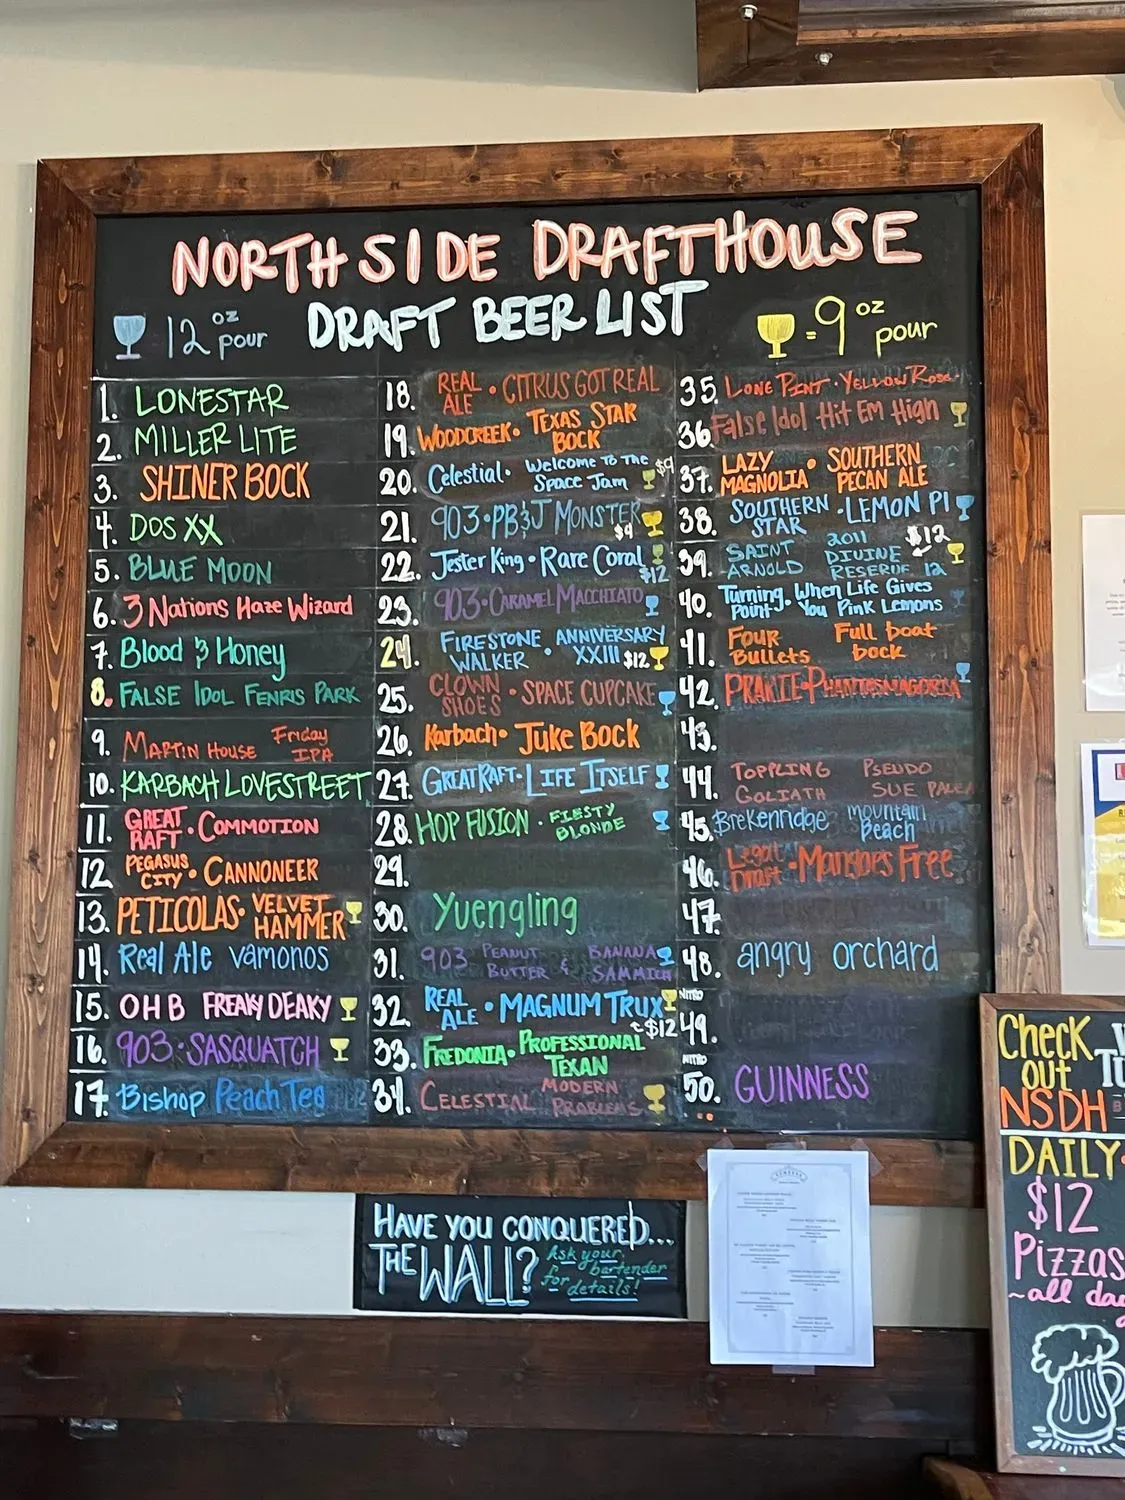 NORTHSIDE DRAFTHOUSE
DRAFT BEER LIST
12 oz pour
= 9 oz pour
1. LONESTAR
2. MILLER LITE
3. SHINER BOCK
4. DOS XX
5. BLUE MOON
6. 3 Nations Haze Wizard
7. Blood & Honey
8. FALSE IDOL FENRIS PARK
9. MARTIN HOUSE Friday IPA
10. KARBACH LOVESTREET
11. GREAT RAFT · COMMOTION
12. PEGASUS CITY · CANNONEER
13. PETICOLAS · VELVET HAMMER
14. Real Ale vamonos
15. OHB FREAKY DEAKY
16. 903 · SASQUATCH
17. Bishop Peach Tea
18. REAL ALE · CITRUS GOT REAL
19. WOODCREEK · TEXAS STAR BOCK
20. Celestial · Welcome To The Space Jam $9
21. 903 · PB&J MONSTER $9
22. Jester King · Rare Coral $12
23. 903 · CARAMEL MACCHIATO
24. FIRESTONE WALKER · ANNIVERSARY XXIII $12
25. CLOWN SHOES · SPACE CUPCAKE
26. Karbach · JUKE BOCK
27. GREAT RAFT · LIFE ITSELF
28. HOP FUSION · FIESTY BLONDE
29.
30. Yuengling
31. 903 PEANUT BUTTER & BANANA SAMMICH
32. REAL ALE · MAGNUM TRUX $12
33. FREDONIA · PROFESSIONAL TEXAN
34. CELESTIAL MODERN PROBLEMS
35. LONE PINT · YELLOW ROSE
36. False Idol Hit Em High
37. LAZY MAGNOLIA · SOUTHERN PECAN ALE
38. SOUTHERN STAR · LEMON PI
39. SAINT ARNOLD 2011 DIVINE RESERVE 12 $12
40. Turning Point · When Life Gives You Pink Lemons
41. FOUR Bullets Full boat bock
42. PRARIE · PHANTASMAGORIA
43.
44. TOPPLING GOLIATH PSEUDO SUE
45. Brekenridge mountain Beach
46. Legal Draft · Mangoes Free
47.
48. angry orchard
NITRO
49.
NITRO
50. GUINNESS
HAVE YOU CONQUERED...
THE WALL? Ask your bartender for details!
Check
out
NSDH
DAILY
$12
Pizzas
~all day